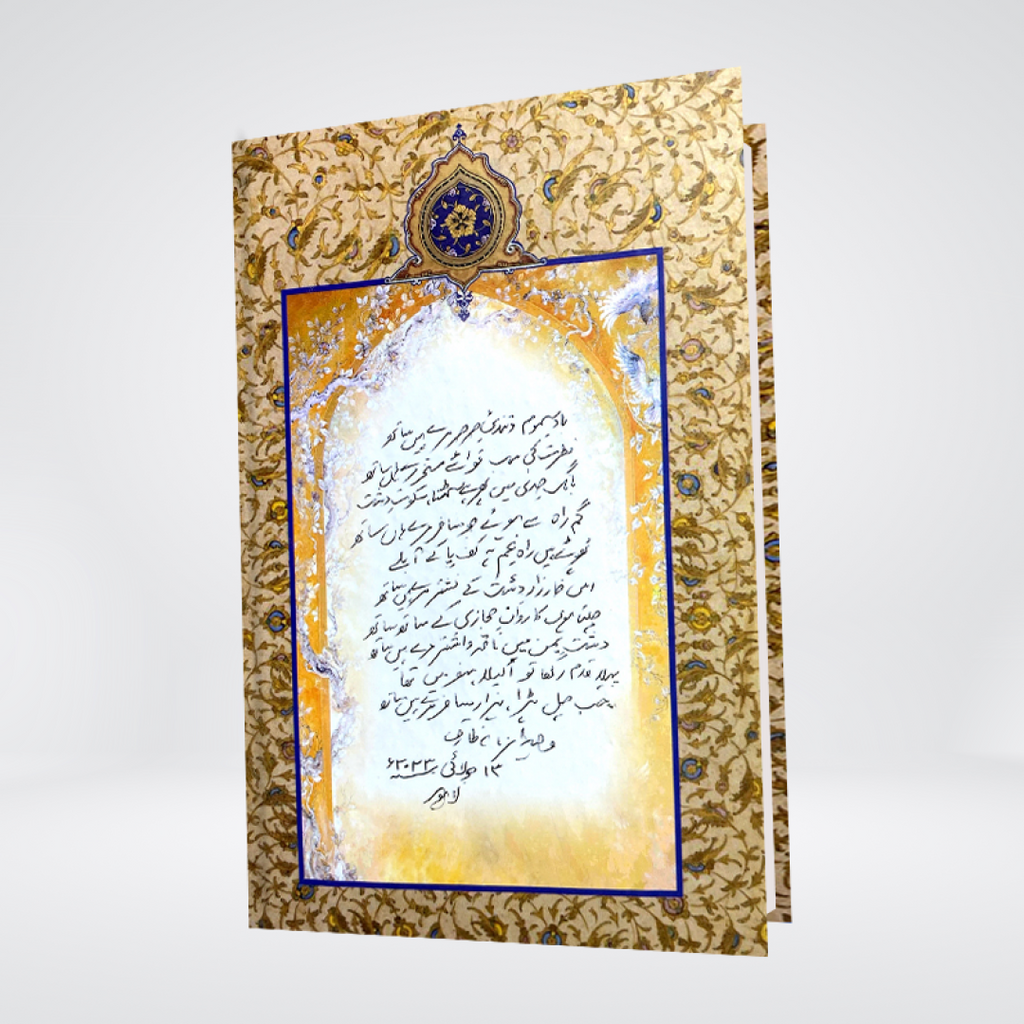 بادِ سموم و تندیِ صرصر مرے ہیں ساتھ
فطرت کی سب قوائے مسخر مرے ہیں ساتھ
بانگِ حدی میں ہے سمٹتا سکوتِ دشت
گم راہ سے ہوئے جو مسافر مرے ہیں ساتھ
پھوٹے ہیں راہِ غم پہ کفِ پا کے آبلے
اس خارزارِ دشت کے نشتر مرے ہیں ساتھ
چلتا ہوں کاروانِ حجازی کے ساتھ ساتھ
دشتِ یمن میں ناقہ و اشتر مرے ہیں ساتھ
پہلا قدم رکھا تو اکیلا سفر میں تھا
جب چل پڑا، ہزار مسافر مرے ہیں ساتھ
طارق
۱۳ جولائی ۲۰۲۳ء
لاہور